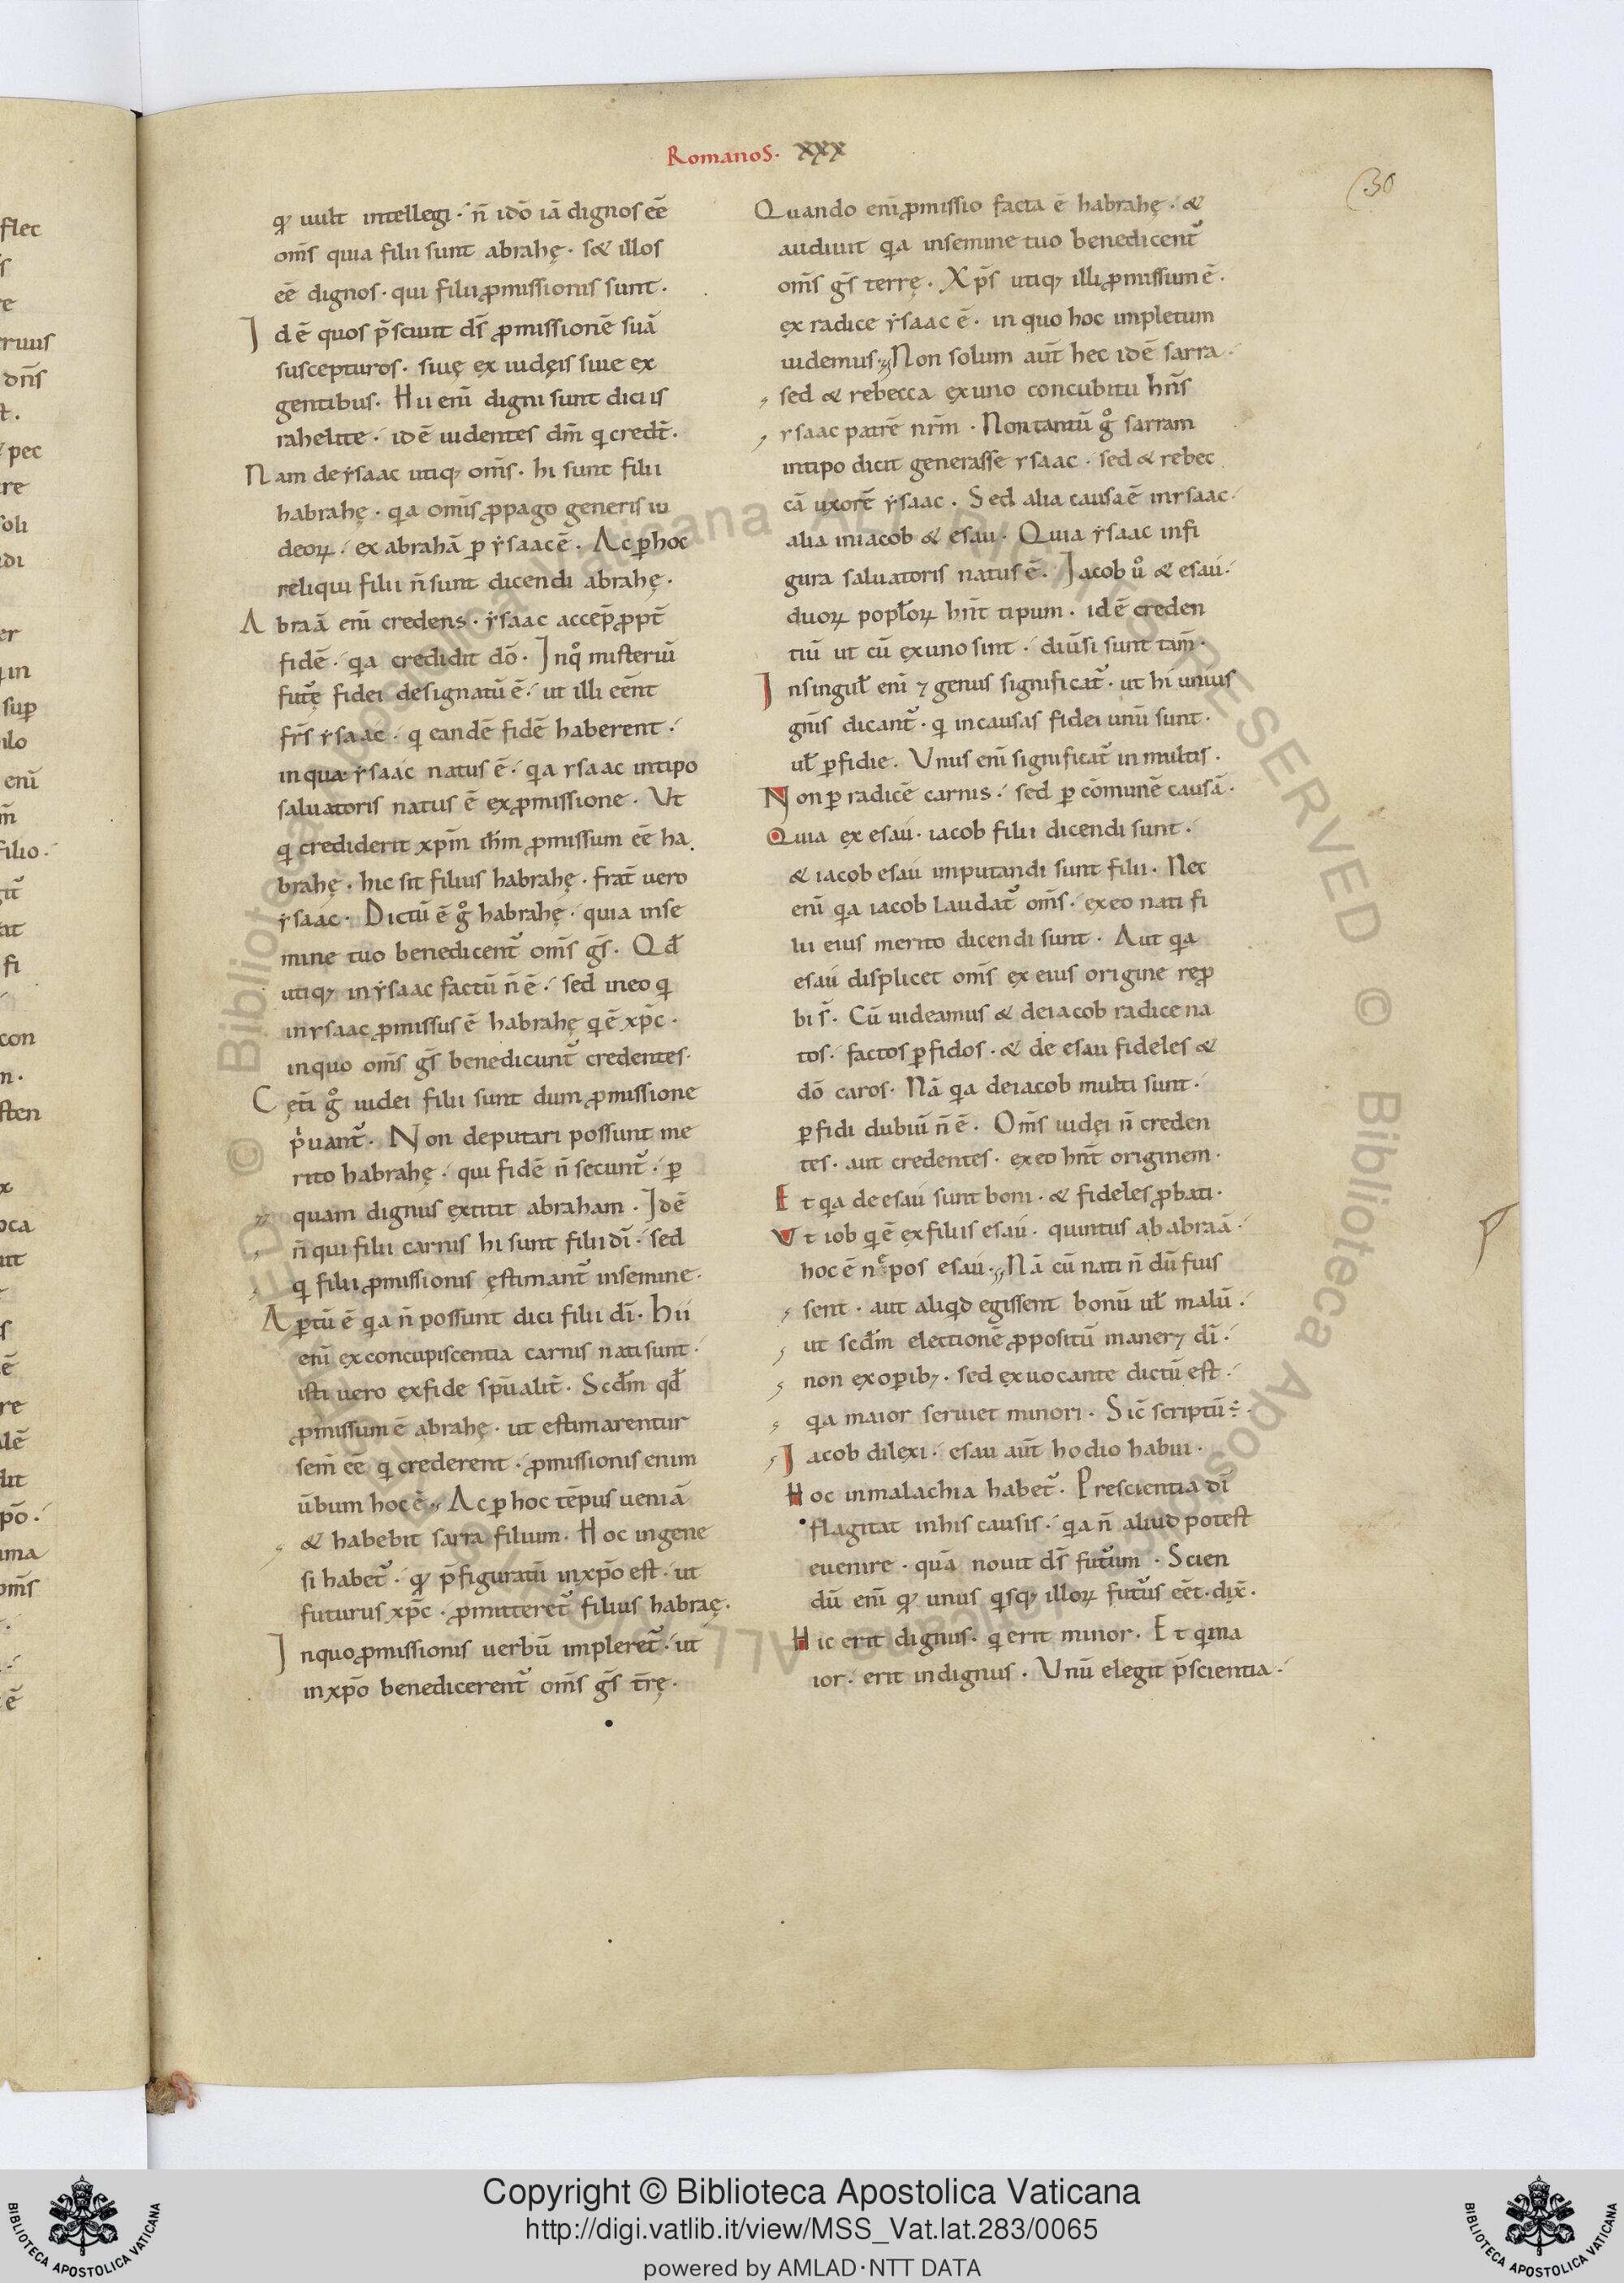 Romanos. XXX
30
qđ uult intellegi. n̄ idō iā dignos eē
om̄s quia filii sunt abrahę. s& illos
eē dignos. qui filii ꝓmissionis sunt.
Id ē quos p̄sciuit ds̄ ꝓmissionē suā
suscepturos. siuę ex iudęis siue ex
gentibus. Hii enī digni sunt dici is
rahelite. id ē uidentes dm̄ q credt̄.
Nam de ẏsaac utiqꝫ om̄s. hi sunt filii
habrahę. qa om̄is ꝓpago generis iu
deoꝝ. ex abrahā ꝑ ẏsaac ē. Ac ꝑ hoc
reliqui filii n̄ sunt dicendi abrahę.
Abraā enī credens. ẏsaac accep̄ ꝓpt̄
fidē. qa credidit dō. In qͦ misteriū
futͮę fidei designatū ē. ut illi eēnt
frs̄ ẏsaac. q eandē fidē haberent.
in qua ẏsaac natus ē. qa ysaac in tipo
saluatoris natus ē ex ꝓmissione. Ut
q crediderit xp̄m ih̄m ꝓmissum eē ha
brahę. hic sit filius habrahę. frat̄ uero
ẏsaac. Dictū ē gͦ habrahę. quia in se
mine tuo benedicentͮ om̄s gs̄. Qđ
utiqꝫ in ẏsaac factū n̄ ē. sed in eo q
in ysaac ꝓmissus ē habrahę q ē xp̄c.
in quo om̄s gs̄ benedicuntͮ credentes.
Cęti gͦ iudei filii sunt dum ꝓmissione
pͥuantͮ. Non deputari possunt me
rito habrahę. qui fidē n̄ secuntͮ. ꝑ
quam dignus extitit abraham. Id ē
n̄ qui filii carnis hi sunt filii dī. sed
q filii ꝓmissionis ęstimantͮ in semine.
Aꝑtū ē qa n̄ possunt dici filii dī. Hii
enī ex concupiscentia carnis nati sunt.
isti uero ex fide spūalit̄. Scđm qđ
ꝓmissum ē abrahę. ut estimarentur
sem̄ eē q crederent. ꝓmissionis enim
ūbum hoc ē. Ac ꝑ hoc tēpus ueniā
& habebit sarra filium. Hoc in gene
si habetͮ. qđ p̄figuratū in xp̄o est. ut
futurus xp̄c. ꝓmitteretͮ filius habraę.
In quo ꝓmissionis uerbū impleretͮ. ut
in xp̄o benedicerentͮ om̄s gs̄ t̄rę.
Quando enī ꝓmissio facta ē habrahę. &
audiuit qa in semine tuo benedicentͮ
om̄s gs̄ terrę. Xp̄s utiqꝫ illi ꝓmissum ē.
ex radice ẏsaac ē. in quo hoc impletum
uidemus. Non solum aut̄ hec id ē sarra.
sed & rebecca ex uno concubitu hn̄s
ysaac patrē nrm̄. Non tantū gͦ sarram
in tipo dicit generasse ysaac. sed & rebec
cā uxorē ẏsaac. Sed alia causa ē in ysaac.
alia in iacob & esau. Quia ẏsaac in fi
gura saluatoris natus ē. Iacob uͦ & esau.
duoꝝ popłoꝝ hn̄t tipum. id ē creden
tiū ut cū ex uno sint. diūsi sunt tam̄.
In singuł enī ⁊ genus significatͮ. ut hi unius
gn̄is dicantͮ. q in causas fidei unū sunt.
uł ꝑfidie. Unus enī significatͮ in multis.
Non ꝑ radicē carnis. sed ꝑ cōmunē causā.
Quia ex esau. iacob filii dicendi sunt.
& iacob esau imputandi sunt filii. Nec
enī qa iacob laudatͮ om̄s. ex eo nati fi
lii eius merito dicendi sunt. Aut qa
esau displicet om̄s ex eius origine reꝓ
bi s̄. Cū uideamus & de iacob radice na
tos. factos ꝑfidos. & de esau fideles &
dō caros. Nā qa de iacob multi sunt.
ꝑfidi dubiū n̄ ē. Om̄s iudęi n̄ creden
tes. aut credentes. ex eo hn̄t originem.
Et qa de esau sunt boni. & fideles ꝓbati.
Ut iob q ē ex filiis esau. quintus ab abraā.
hoc ē nepos esau. Nā cū nati n̄ dū fuis
sent. aut aliqd egissent bonū uł malū.
ut scđm electionē ꝓpositū manerꝫ dī.
non ex oꝑibꝫ. sed ex uocante dictū est.
qa maior seruiet minori. Sic̄ scriptū ÷.
Iacob dilexi. esau aut̄ hodio habui.
Hoc in malachia habetͮ. Prescientia dī
flagitat in his causis. qa n̄ aliud potest
euenire. quā nouit ds̄ futͮum. Scien
dū enī qđ unus qsqꝫ illoꝝ futͮus eēt. dix̄.
Hic erit dignus. q erit minor. Et q ma
ior. erit indignus. Unū elegit p̄scientia.
Copyright © Biblioteca Apostolica Vaticana
http://digi.vatlib.it/view/MSS_Vat.lat.283/0065
powered by AMLAD·NTT DATA